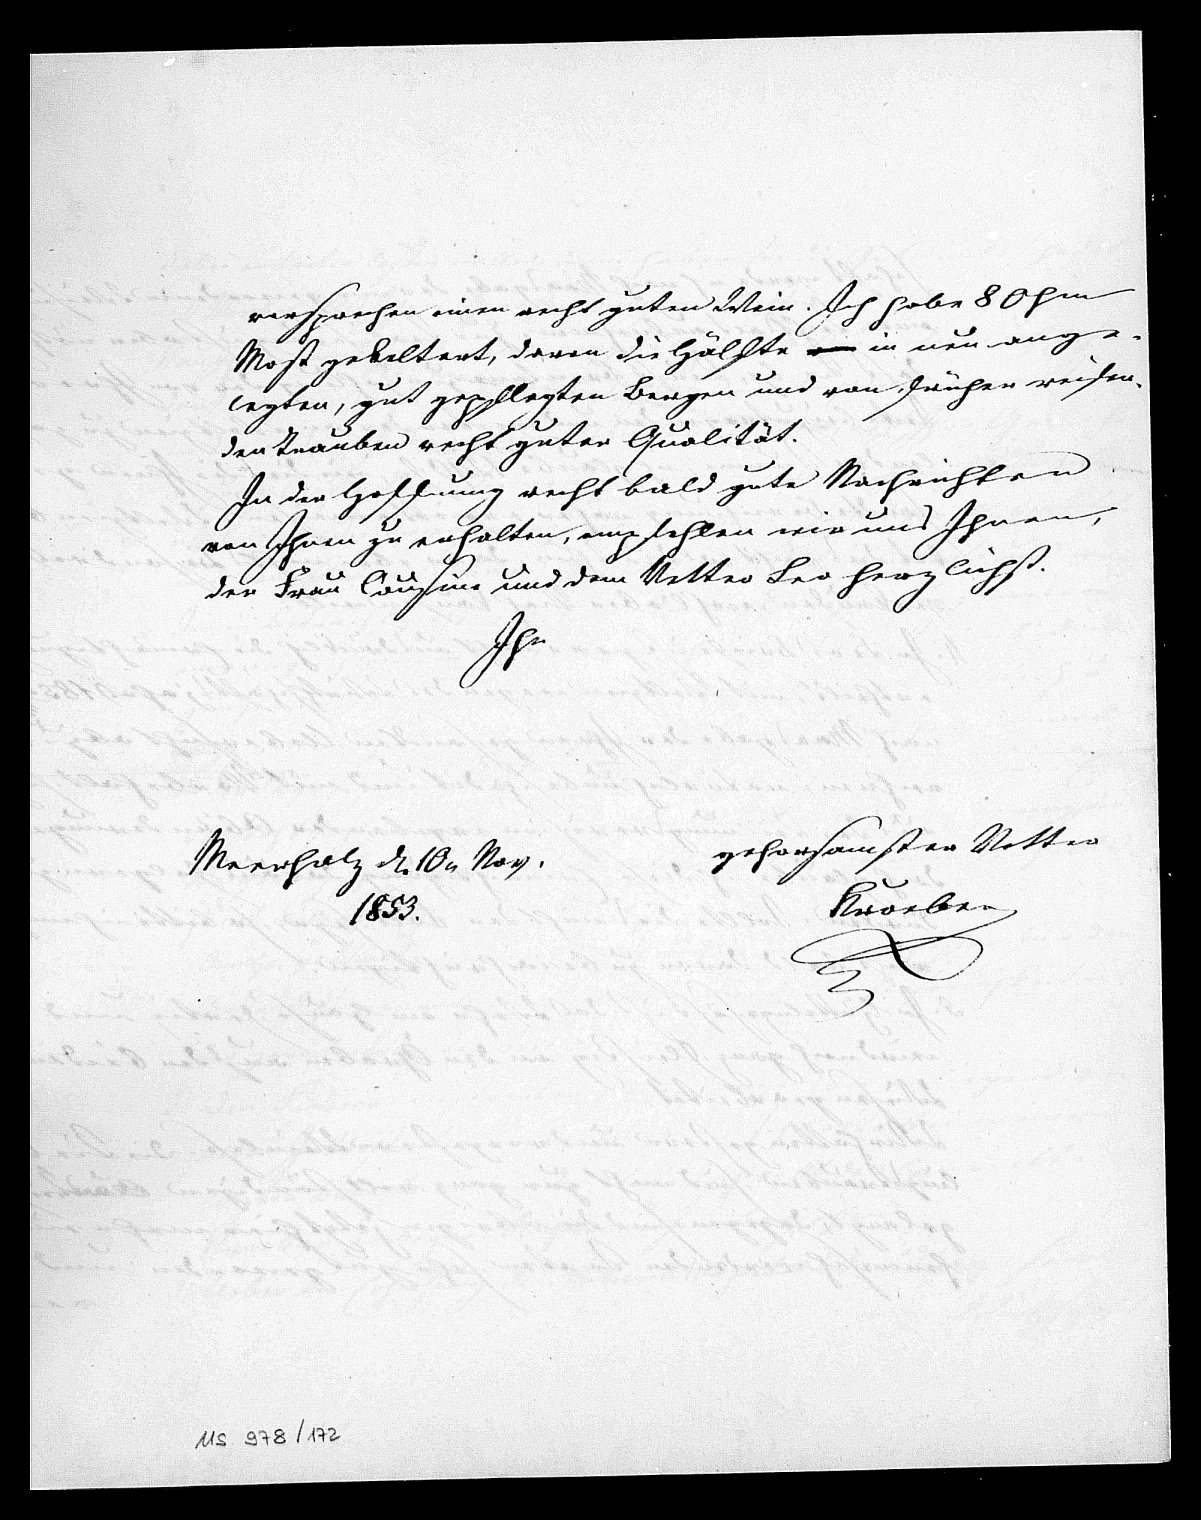 versprechen einen recht guten Wein. Ich habe 8 Ohm
Most gekeltert, davon die Hälfte in neu ange-
legten, gut gepflegten Bergen und von früher reifen-
den Trauben recht guter Qualität.
In der Hoffnung recht bald gute Nachrichten
von Ihnen zu erhalten, empfehlen wir uns Ihnen,
der Frau Cousine und dem Vetter Leo herzlichst.
Ihr
gehorsamster Vetter
Kroeber
Meerholz d. 10n Nov.
1853.
MS 978/172